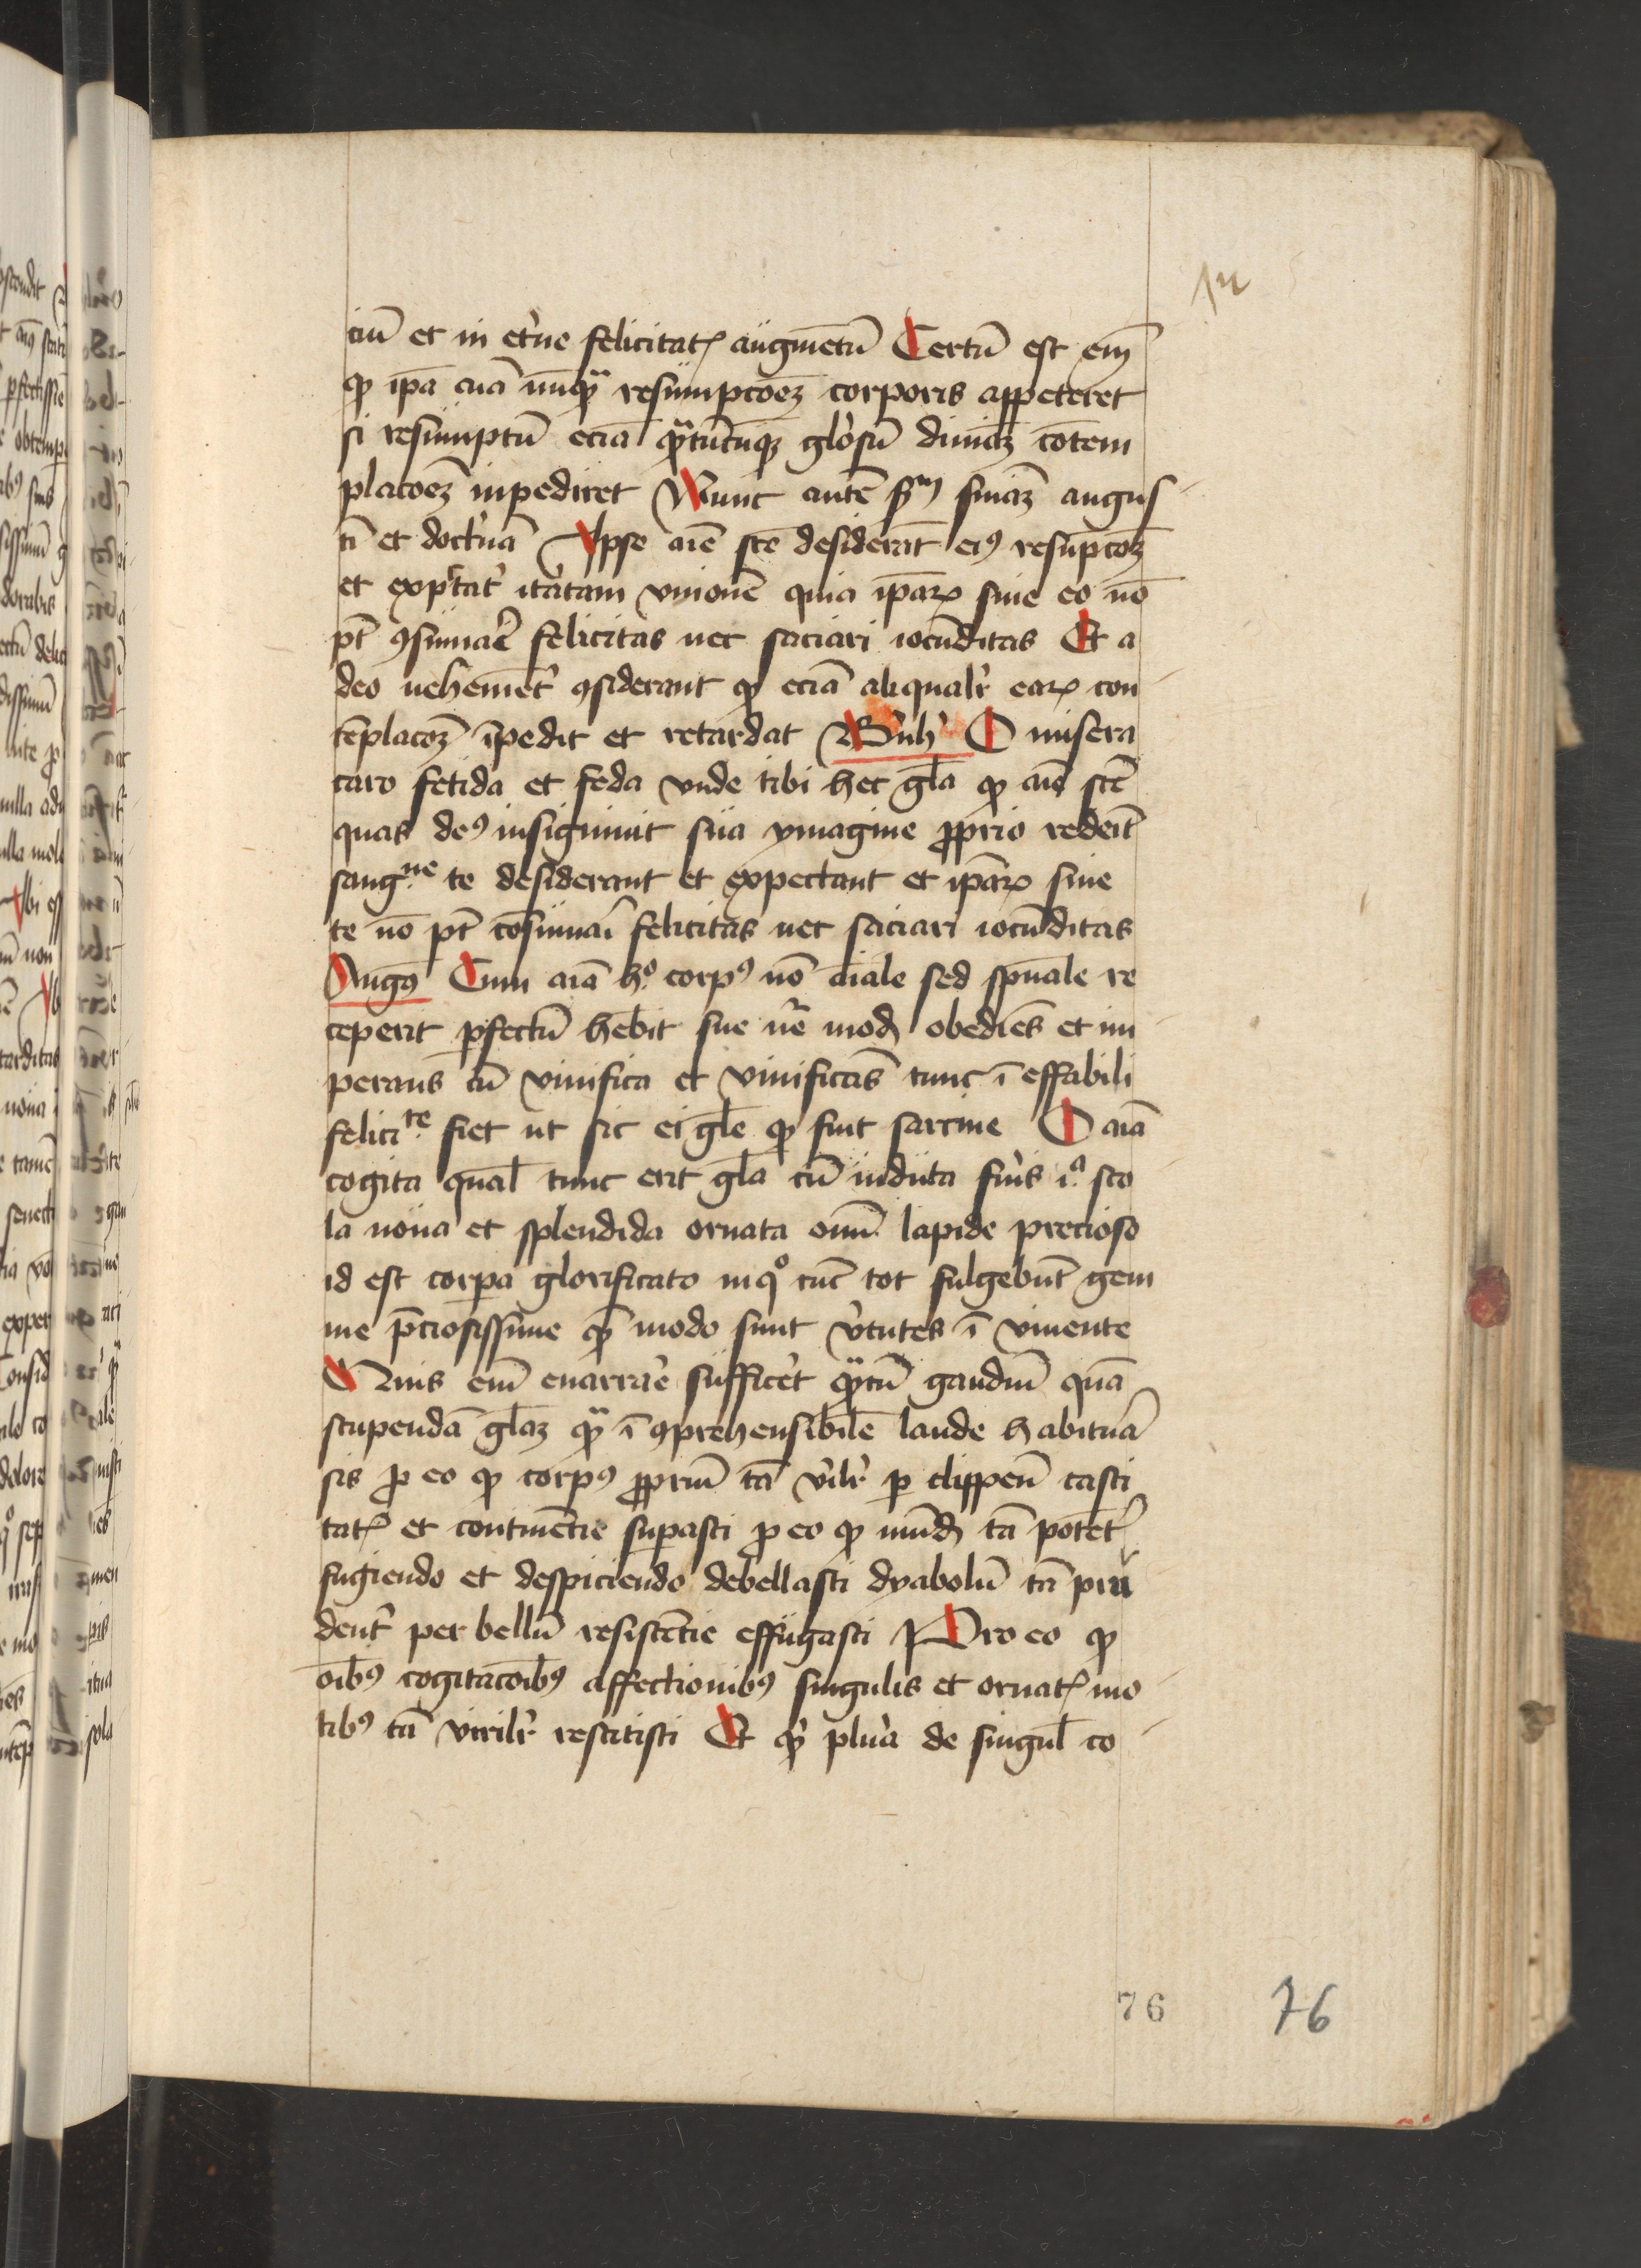 ciū et in et'ne felicitatꝭ augmētū Certū est em̄
ꝙ ip̄a aīa nūqᷓ resumpcōeꝫ corporis appeteret
si resumptū eciā qᷓtūcūqꝫ glo'sū diuiāꝫ cōtem
placōeꝫ inpediret Nunc autē scᵈᵐ sniāꝫ augus
ti et doct'nā Ipse aīe scē desiderāt eiꝰ resūpcōꝫ
et expctāt it'atam vnionē quia ipaꝝ sine eo nō
pt̄ ꝯsūmari felicitas nec saciari iocūditas Et a
deo uehemēt' ꝯsiderant ꝙ eciā aliqualr̄ eaꝝ con
tēplacōꝫ īpedit et retardat B'nh' O misera
caro fetida et feda vnde tibi hec gl̄a ꝙ aīe scē
quas deꝰ insigniuit sua ymagine ꝓprio redeīt
sangⁿᵉ te desiderant et expectant et ipaꝝ sine
te nō pt̄ cōsūmari felicitas nec saciari iocūditas
Augꝰ Cum aīa hᵒ corpꝰ nō aīale sed spūale re
ceperit ꝑfectū hēbit sue nē modū obediēs et im
perans cū viuifica et viuificās tunc ī effabili
feliciᵗᵉ fiet ut sic ei gl̄e ꝙ fuit sarcine O aīa
cogita qual̄ tunc erit gl̄a cū induta fu'is iᵃ sto
la noua et splendida ornata omī lapide precioso
id est corpa glorificato inqᵒ tūc tot fulgebūt gem
me p̄ciosissime qͣ modo sunt v'tutes ī viuente
Quis em̄ enarrare sufficēt qᷓtū gaudiū quā
stupendā gl̄aꝫ qᷓ ī ꝯprehensibilē laude habitua
sis ꝓ eo ꝙ corpꝰ ꝓpriū tā v'ilr̄ ꝑ clippeū casti
tatꝭ et continētie suꝑasti ꝓ eo ꝙ mūdū tā potēt'
fugiendo et despiciendo debellasti dyabolū tā pru
dent' per bellū resistētie effugasti Pro eo ꝙ
oībꝰ cogitacōibꝰ affectionibꝰ singulis et ornatꝭ mo
tibꝰ tā virilr̄ restitisti Et qͥ plu'a de singul̄ co
76 76